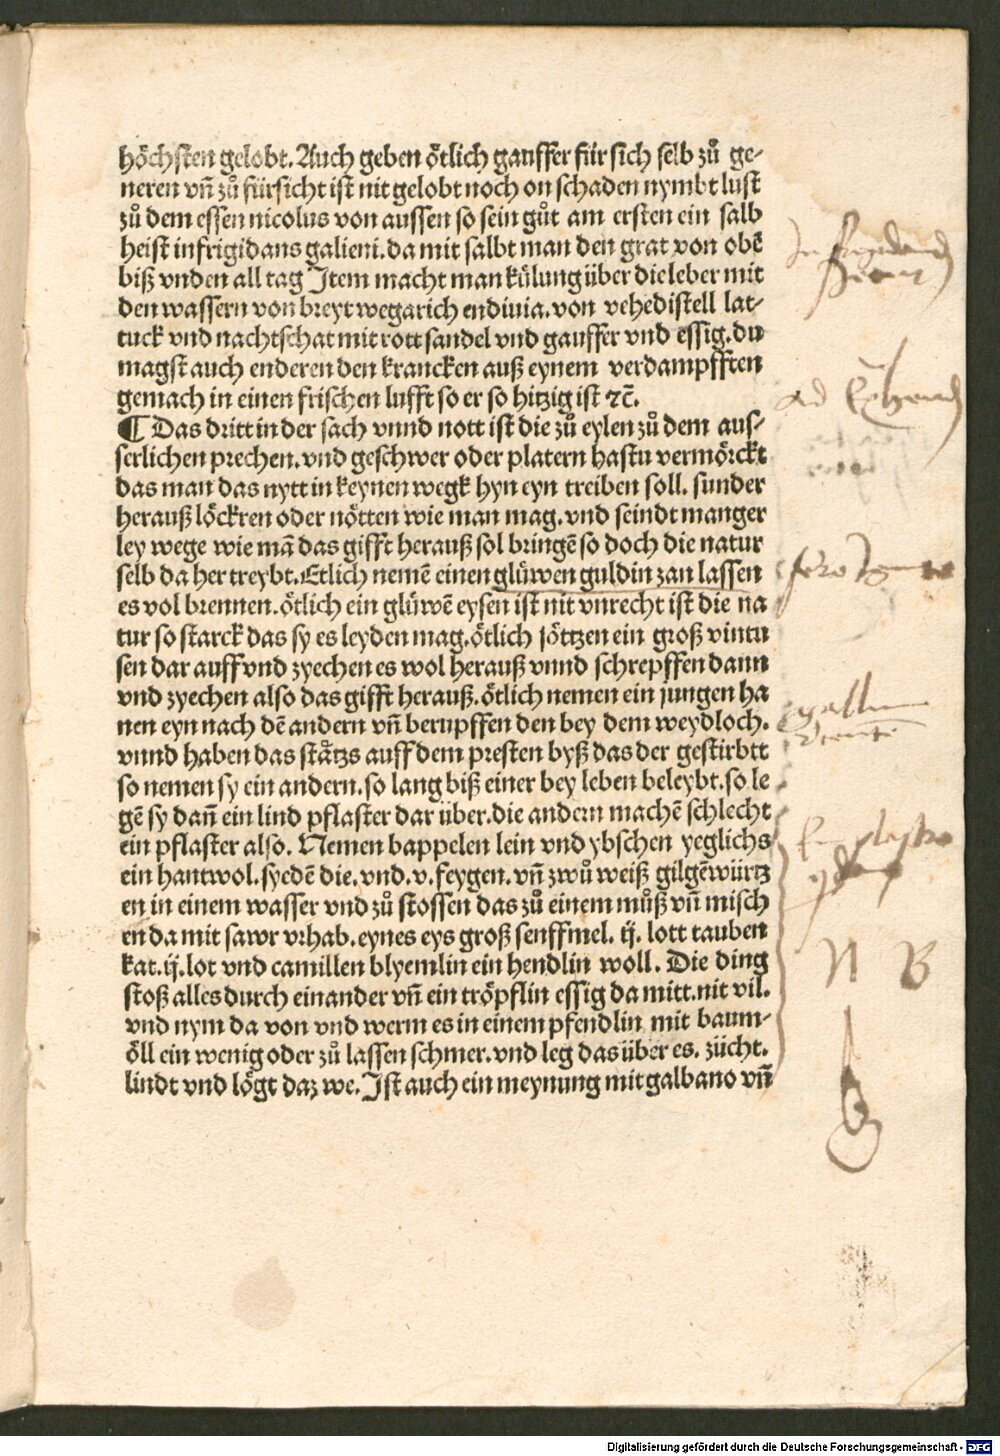 höchsten gelobt. Auch geben ötlich gauffer für sich selb zů ge-
neren vñ zů fürsicht ist nit gelobt noch on schaden nymbt lust
zů dem essen nicolus von aussen so sein gůt am ersten ein salb
heist infrigidans galieni. da mit salbt man den grat von obẽ
biß vnden all tag Item macht man külung über die leber mit
den wassern von breyt wegarich endiuia. von vehedistell lat-
tuck vnd nachtschat mit rott sandel vnd gauffer vnd essig. du
magst auch enderen den krancken auß eynem verdampfften
gemach in einen frischen lufft so er so hitzig ist ⁊c̃.
¶ Das dritt in der sach vnnd nott ist die zů eylen zů dem aus-
serlichen prechen. vnd geschwer oder platern hastu vermörckt
das man das nytt in keynen wegk hyn eyn treiben soll. sunder
herauß löckren oder nötten wie man mag. vnd seindt manger
ley wege wie mã das gifft herauß sol bringẽ so doch die natur
selb da her treybt. Etlich nemẽ einen glüwen guldin zan lassen
es vol brennen. ötlich ein glüwẽ eysen ist nit vnrecht ist die na
tur so starck das sy es leyden mag. ötlich söttzen ein groß vintu
sen dar auff vnd zyechen es wol herauß vnnd schrepffen dann
vnd zyechen also das gifft herauß. ötlich nemen ein jungen ha
nen eyn nach dẽ andern vñ berupffen den bey dem weydloch.
vnnd haben das stätzs auff dem presten byß das der gestirbtt
so nemen sy ein andern. so lang biß einer bey leben beleybt. so le
gẽ sy dañ ein lind pflaster dar über. die andern machẽ schlecht
ein pflaster also. Nemen bappelen lein vnd ybschen yeglichs
ein hantwol. syedẽ die. vnd. v. feygen. vñ zwů weiß gilgẽwürtz
en in einem wasser vnd zů stossen das zů einem můß vñ misch
en da mit sawr vrhab. eynes eys groß senffmel. ij. lott tauben
kat. ij. lot vnd camillen blyemlin ein hendlin woll. Die ding
stoß alles durch einander vñ ein tröpflin essig da mitt. nit vil.
vnd nym da von vnd werm es in einem pfendlin mit baum-
öll ein wenig oder zů lassen schmer. vnd leg das über es. zücht.
lindt vnd lögt daz we. Ist auch ein meynung mit galbano vñ
N B
Digitalisierung gefördert durch die Deutsche Forschungsgemeinschaft - DFG